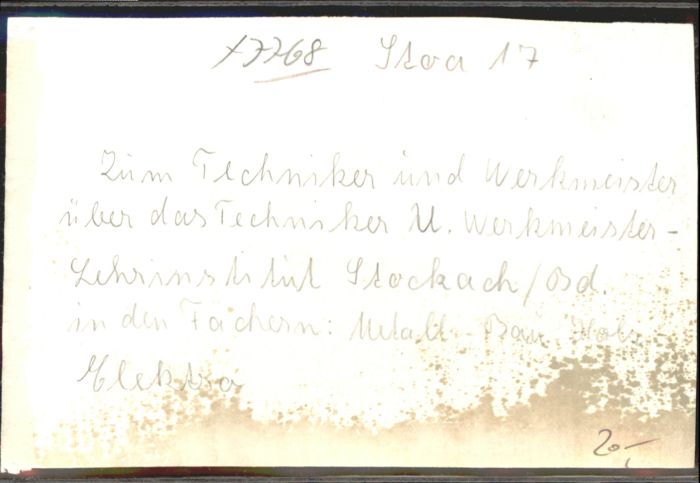 Stoa 17
Zum Techniker und Werkmeister
über das Techniker U. Werkmeister-
Lehrinstitut Stockach/Bd.
in den Fächern: Metall Bau Holz
Elektro
20,-